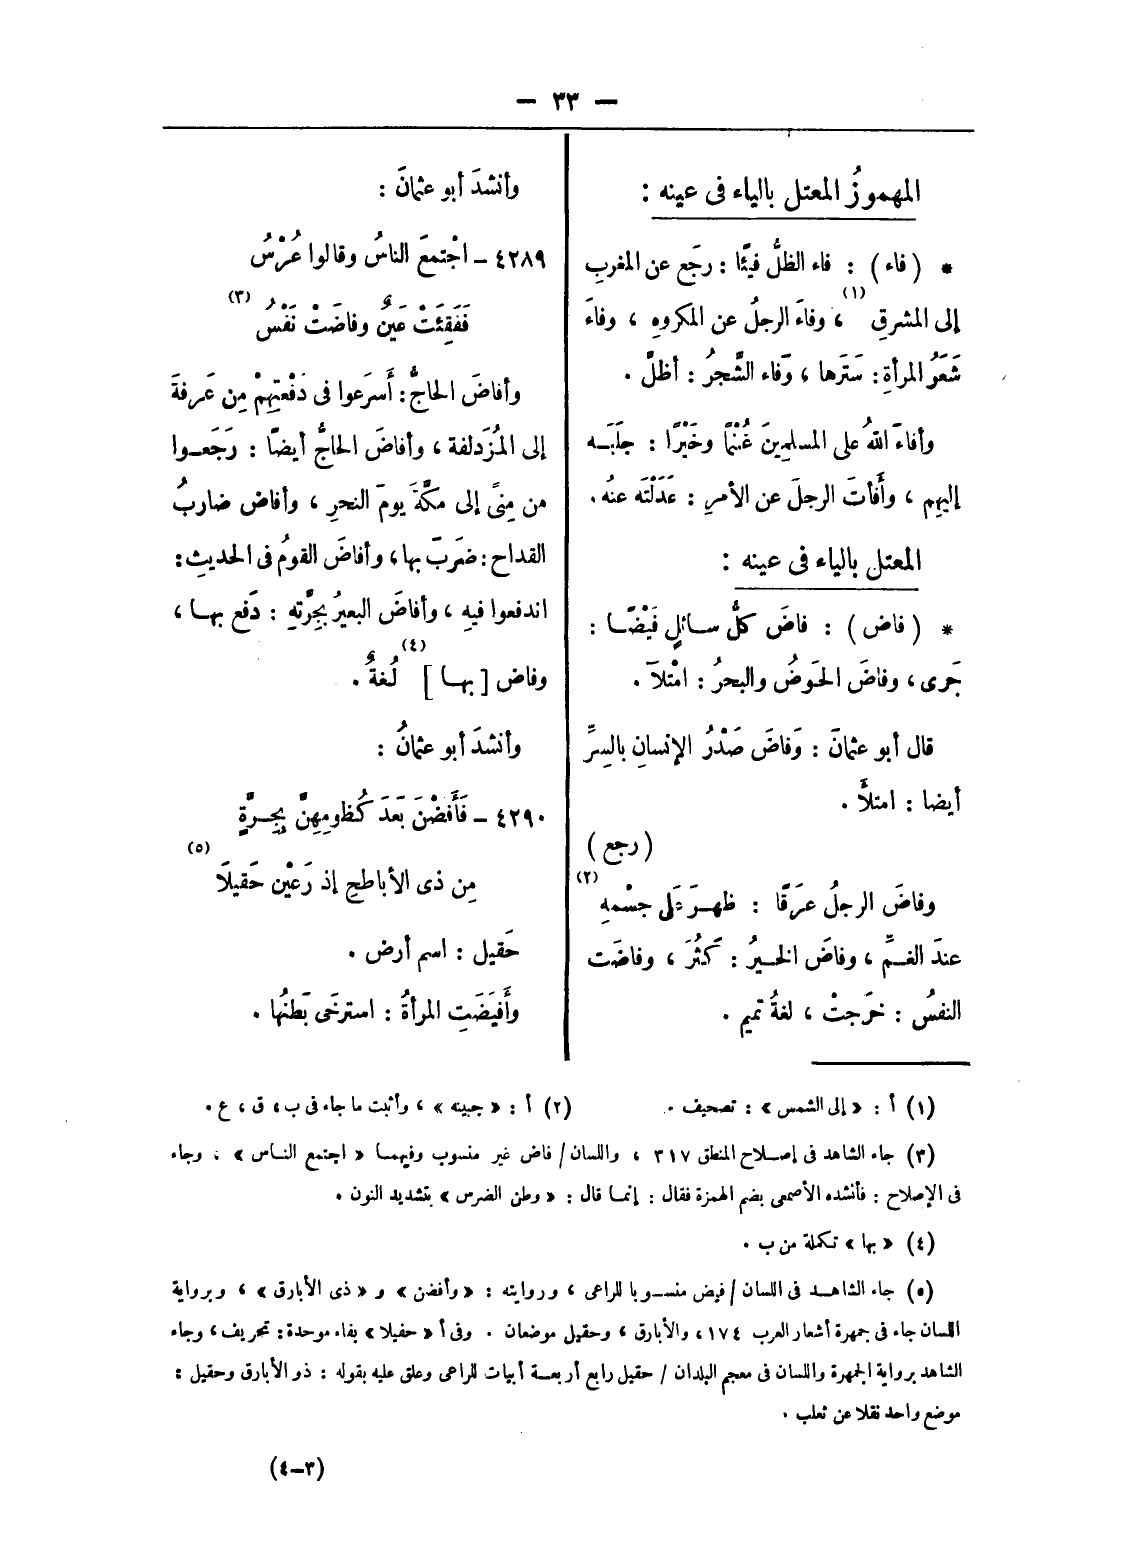 — ٣٣ —
المهموزُ المعتل بالياء فى عينه :
* ( فاء ) : فاء الظلُّ فيئًا : رجَع عن المغربِ
إلى المشرقِ (١) ، وفاءَ الرجلُ عن المكروهِ ، وفاءَ
شَعَرُ المرأةِ : سَتَرها ، وَفاء الشَّجرُ : أظلَّ .
وأفاءَ اللهُ على المسلمِينَ غُنْمًا وخَيْرًا : جلَبَـه
إليهِم ، وأَفأتَ الرجلَ عن الأمرِ : عَدَلْتَه عنهُ .
المعتل بالياء فى عينه :
* ( فاض ) : فاضَ كلُّ سـائلٍ فَيْضًـا :
جَرى ، وفاضَ الحَوضُ والبحرُ : امْتلآ .
قال أبو عثمانَ : وَفاضَ صَدْرُ الإنسانِ بالسِرِّ
أيضا : امتلأَ .
( رجع )
وفاضَ الرجلُ عرَقًا : ظهـرَ عَلى جسْمهِ (٢)
عندَ الغـمِّ ، وفاضَ الخـيرُ : كَثُرَ ، وفاضَت
النفسُ : خرَجتْ ، لغةُ تميم .
وأنشدَ أبو عثمانَ :
٤٢٨٩ – اجْتمعَ الناسُ وقالوا عُرْسُ
فَفَقِئَتْ عَينٌ وفاضَتْ نَفْسُ (٣)
وأفاضَ الحاجُّ : أَسرَعوا فى دَفْعتِهِمْ مِن عَرفةَ
إلى المُزْدَلفة ، وأفاضَ الحاجُّ أيضًا : رَجَعـوا
من مِنًى إلى مكَّةَ يومَ النحرِ ، وأفاض ضاربُ
القداح : ضرَبَ بها ، وأفاضَ القومُ فى الحديثِ :
اندفعوا فيهِ ، وأفاضَ البعيرُ بجِرَّتهِ : دَفع بهـا ،
وفاض [ بهـا ] (٤) لُغةٌ .
وأنشدَ أبو عثمانُ :
٤٢٩٠ – فَأَفضْنَ بَعَدَ كُظومِهِنَّ بِجِـرَّةٍ
مِن ذى الأباطحِ إذ رَعَيْن حَقيلاَ (٥)
حَقيل : اسم أرض .
وأَفيَضَتِ المرأةُ : استرخَى بَطنُها .
(١) أ : « إلى الشمس » : تصحيف .
(٢) أ : « جبينه » ، وأثبت ما جاء فى ب ، ق ، ع .
(٣) جاء الشاهد فى إصـلاح المنطق ٣١٧ ، واللسان / فاض غير منسوب وفيهمـا « اجتمع النـاس » ، وجاء
فى الإصلاح : فأنشده الأصمعى بضم الهمزة فقال : إنمـا قال : « وطن الضرس » بتشديد النون .
(٤) « بها » تكملة من ب .
(٥) جاء الشاهـد فى اللسان / فيض منسـوبا للراعى ، وروايته : « وأفضن » و « ذى الأبارق » ، وبرواية
اللسان جاء فى جمهرة أشعار العرب ١٧٤ ، والأبارق ، وحقيل موضعان . وفى أ « حفيلا » بفاء موحدة : تحريف ، وجاء
الشاهد برواية الجمهرة واللسان فى معجم البلدان / حقيل رابع أربعـة أبيات للراعى وعلق عليه بقوله : ذو الأبارق وحقيل :
موضع واحد نقلا عن ثعلب .
(٣–٤)